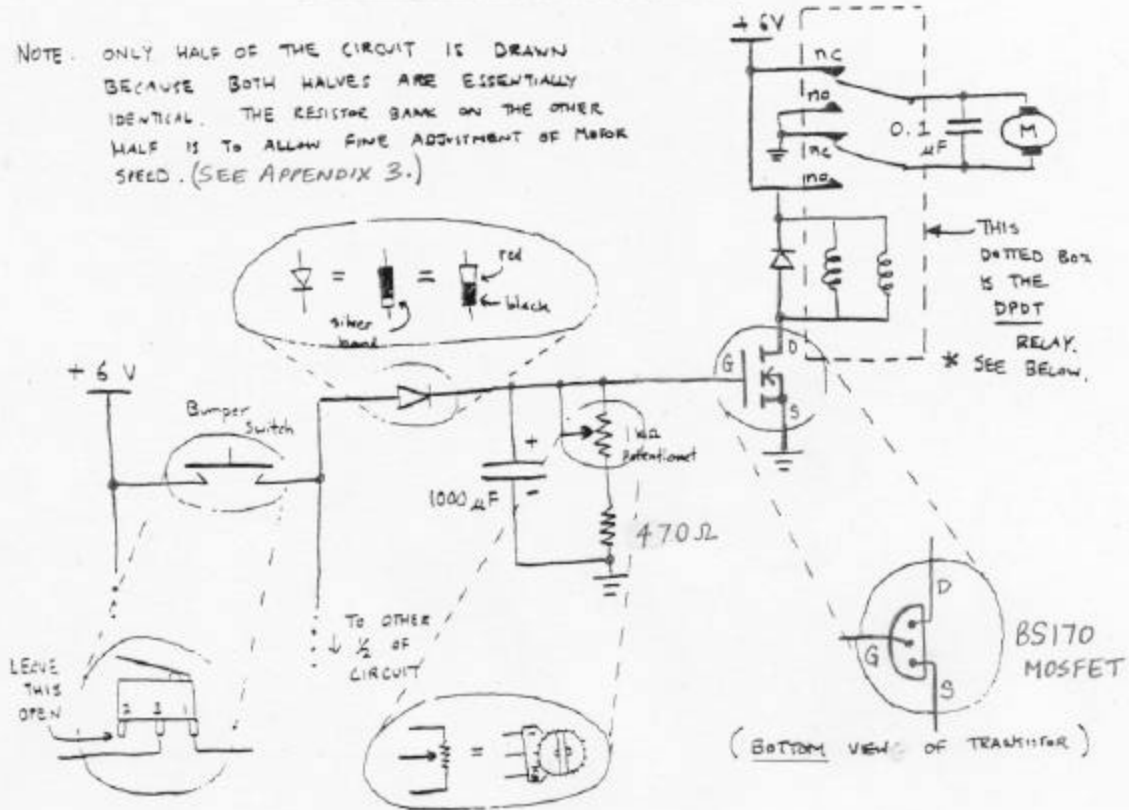 NOTE. ONLY HALF OF THE CIRCUIT IS DRAWN
BECAUSE BOTH HALVES ARE ESSENTIALLY
IDENTICAL. THE RESISTOR BANK ON THE OTHER
HALF IS TO ALLOW FINE ADJUSTMENT OF MOTOR
SPEED. (SEE APPENDIX 3.)
+ 6V
nc
no
nc
no
0.1
µF
M
THIS
DOTTED BOX
IS THE
DPDT
RELAY.
* SEE BELOW.
= =
red
black
silver
band
+ 6 V
Bumper
Switch
+
-
1000 µF
Potentiomet
470Ω
G
D
S
TO OTHER
↓ ½ OF
CIRCUIT
LEAVE
THIS
OPEN
2 3 1
=
D
G
S
BS170
MOSFET
(BOTTOM VIEW OF TRANSISTOR)